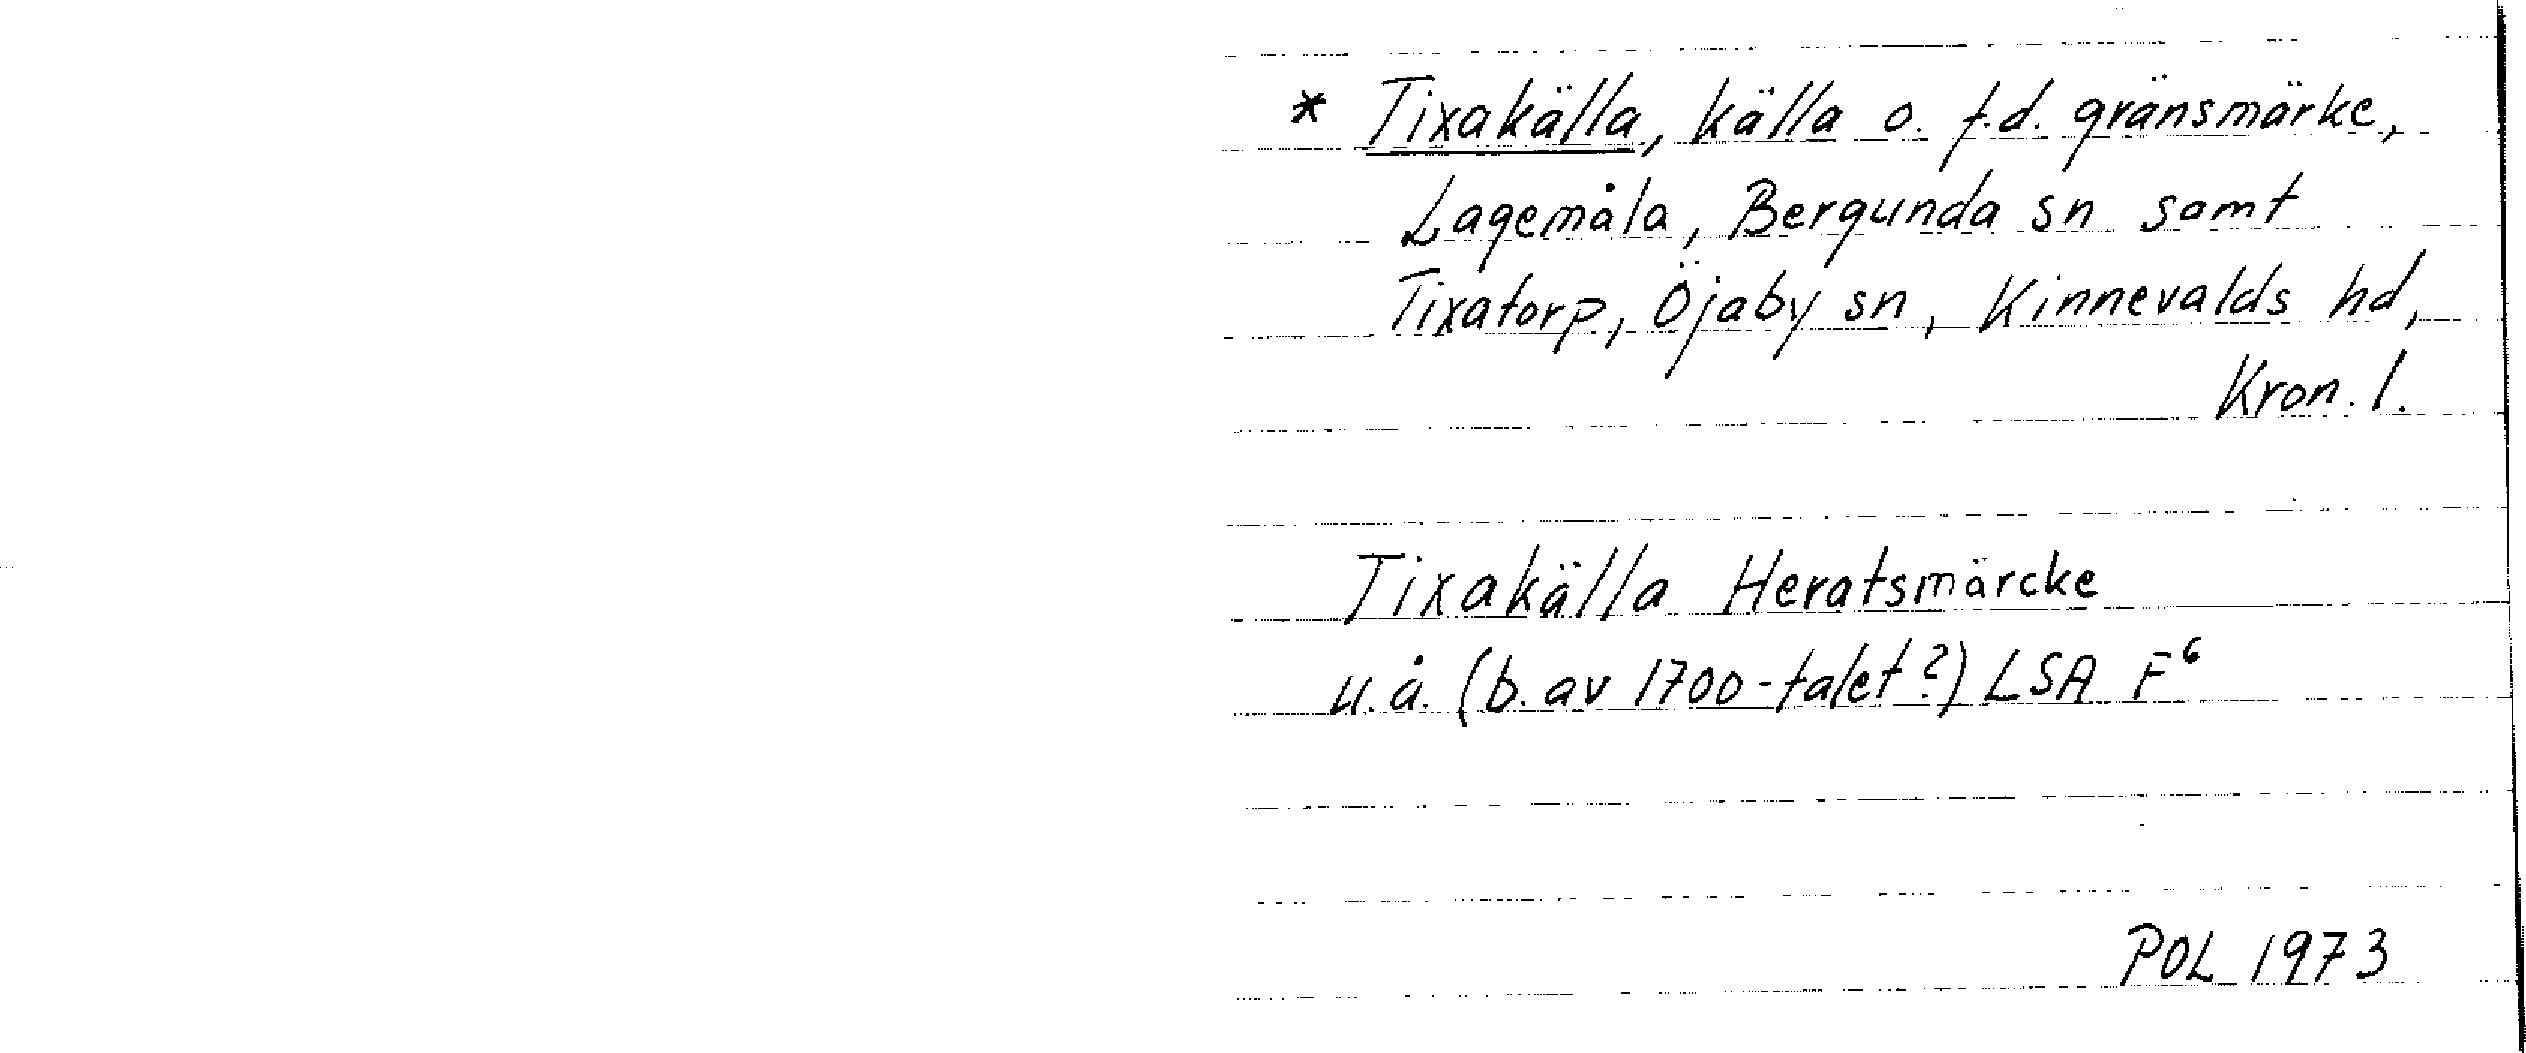 * Tixakälla, källa o. f.d. gränsmärke,
Lagemåla, Bergunda sn samt
Tixatorp, Öjaby sn, Kinnevalds hd,
Kron. l.
Tixakälla Heratsmärcke
u.å. (b. av 1700-talet?) LSA F⁶
POL 1973